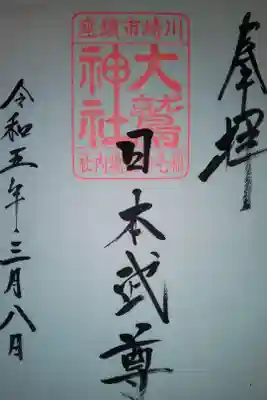 奉拝
川崎市鎮座
大鷲神社
日本武尊
令和五年三月八日